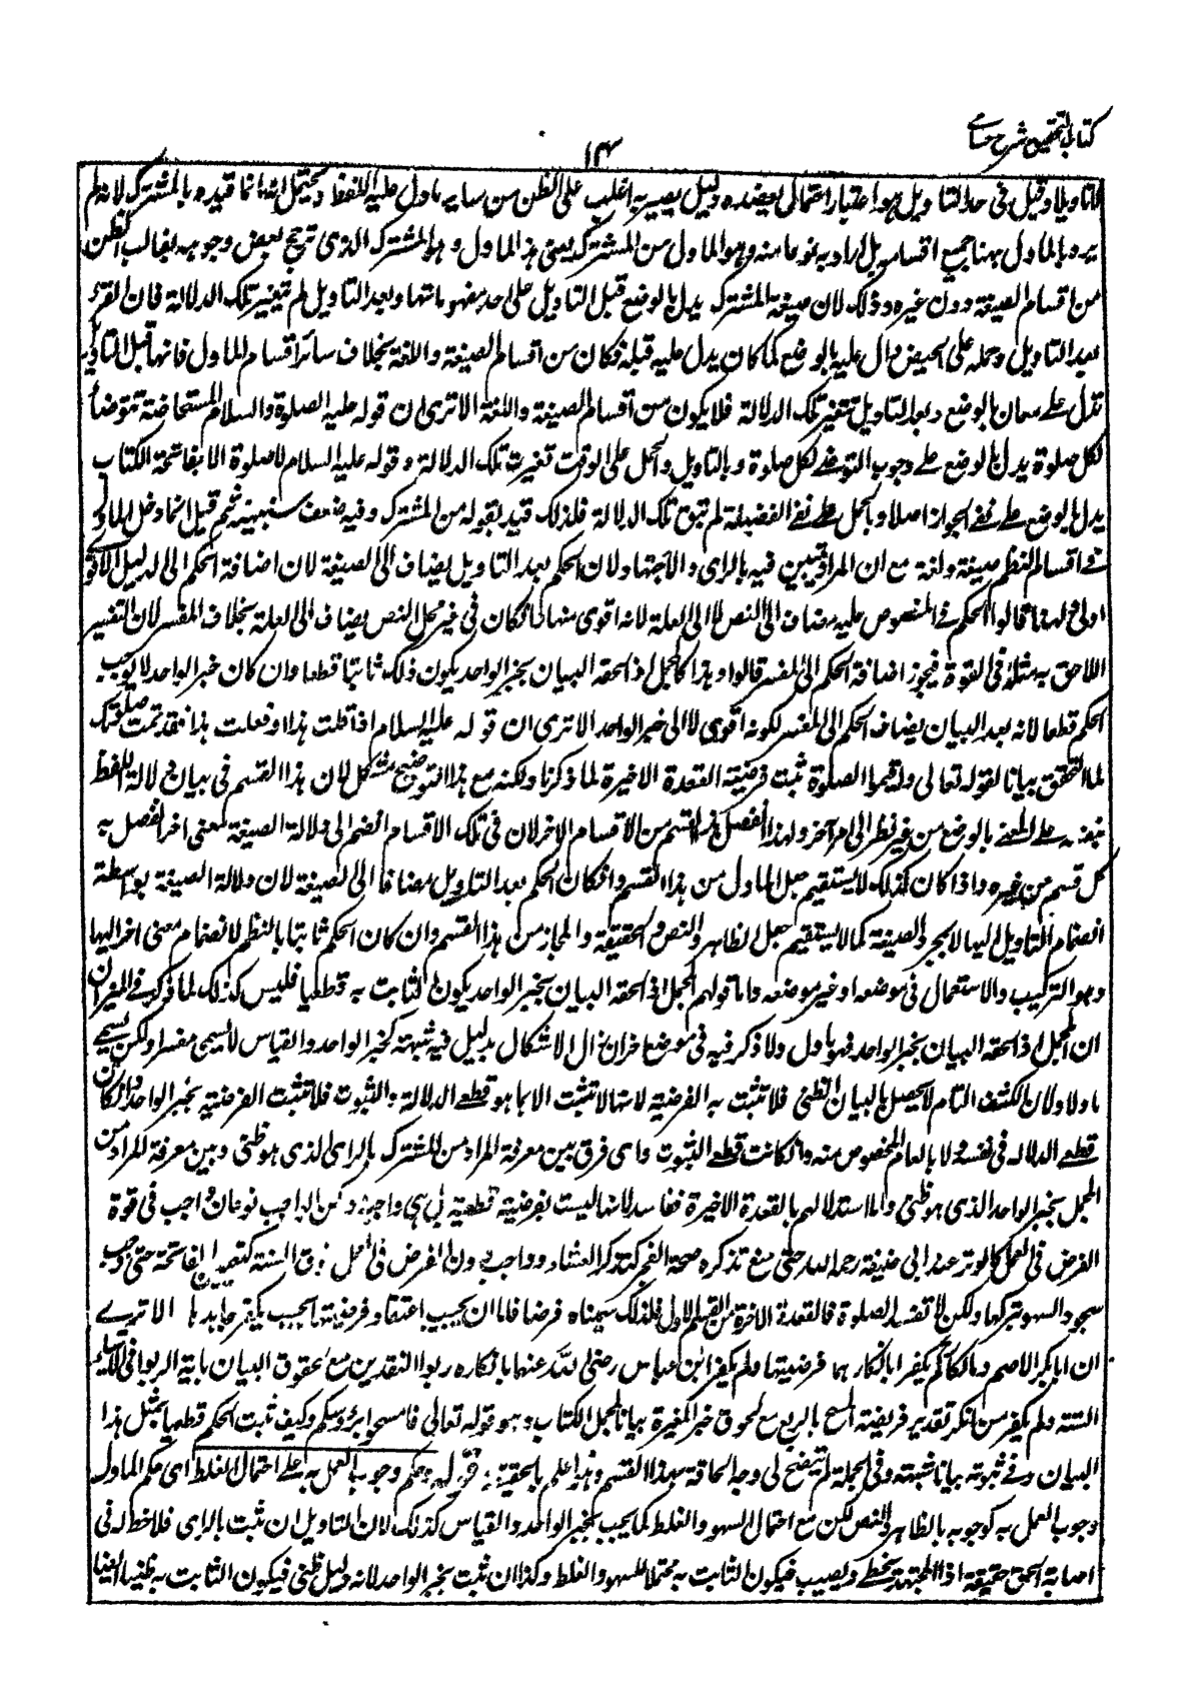 كتاب التحقيق شرح حسامى
١٣
لا تاويلا وقيل فى حد التاويل هو اعتبار احتمال يعضده دليل يصير به اغلب على الظن من ساير ما دل عليه اللفظ ويحتمل انه انما قيده بالمشترك لانه لم
يرد بالماول ههنا جميع اقسامه بل اراد به نوعا منه وهو الماول من المشترك يعنى هذا الماول وهو المشترك الذى ترجح بعض وجوهه بغالب الظن
من اقسام الصيغة دون غيره وذلك لان صيغة المشترك يدل بالوضع قبل التاويل على احد مفهوماتها وبعد التاويل لم تتغير تلك الدلالة فان القرء
بعد التاويل وحمله على الحيض دال عليه بالوضع كما كان يدل عليه قبله فكان من اقسام الصيغة واللغة بخلاف سائر اقسام الماول فانها قبل التاويل
تدل على معان بالوضع وبعد التاويل تتغير تلك الدلالة فلا يكون من اقسام الصيغة واللغة الا ترى ان قوله عليه الصلوة والسلام المستحاضة تتوضأ
لكل صلوة يدل بالوضع على وجوب التوضى لكل صلوة وبالتاويل والحمل على الوقت تغيرت تلك الدلالة وقوله عليه السلام لا صلوة الا بفاتحة الكتاب
يدل بالوضع على نفى الجواز اصلا وبالحمل على نفى الفضيلة لم تبق تلك الدلالة فلذلك قيد بقوله من المشترك وفيه ضعف سنبينه ثم قيل انما دخل الماول
فى اقسام النظم صيغة ولغة مع ان المراد تبين فيه بالراى والاجتهاد لان الحكم بعد التاويل يضاف الى الصيغة لان اضافة الحكم الى الدليل الاقوى
اولى ولهذا قالوا الحكم فى المنصوص عليه مضاف الى النص لا الى العلة لانه اقوى منها وان كان فى غير محل النص يضاف الى العلة بخلاف المفسر لان التفسير
اللاحق به مثله فى القوة فيجوز اضافة الحكم الى المفسر قالوا وهذا كالمجمل اذا لحقه البيان بخبر الواحد يكون ذلك ثابتا قطعا وان كان خبر الواحد لا يوجب
الحكم قطعا لانه بعد البيان يضاف الحكم الى المفسر لكونه اقوى لا الى خبر الواحد الا ترى ان قوله عليه السلام اذا قلت هذا او فعلت هذا فقد تمت صلوتك
لما التحق بيانا لقوله تعالى واقيموا الصلوة ثبت فرضية القعدة الاخيرة لما ذكرنا ولكنه مع هذا التوضيح مشكل لان هذا القسم فى بيان دلالة اللفظ
بنفسه على المعنى بالوضع من غير نظر الى امر آخر ولهذا انفصل هذا القسم من الاقسام الاخر لان فى تلك الاقسام انضم الى دلالة الصيغة معنى اخر انفصل به
كل قسم من غيره واذا كان كذلك لا يستقيم جعل الماول من هذا القسم وان كان الحكم بعد التاويل مضافا الى الصيغة لان دلالة الصيغة بواسطة
انضمام التاويل اليها لا بمجرد الصيغة كما لا يستقيم جعل الظاهر والنص والحقيقة والمجاز من هذا القسم وان كان الحكم ثابتا بالنظم لانضمام معنى اخر اليها
وهو التركيب والاستعمال فى موضعه او غير موضعه واما قولهم المجمل اذا لحقه البيان بخبر الواحد يكون الثابت به قطعيا فليس كذلك لما ذكر فى الميزان
ان المجمل اذا لحقه البيان بخبر الواحد فهو ماول ولا ذكر فيه فى موضع اخر ان زال الاشكال بدليل فيه شبهة كخبر الواحد والقياس لا يسمى مفسرا ولكن يسمى
ماولا ولان الكشف التام لا يحصل بالبيان الظنى فلا تثبت به الفرضية لانها لا تثبت الا بما هو قطعى الدلالة والثبوت فلا تثبت الفرضية بخبر الواحد وان كان
قطعى الدلالة فى نفسه ولا بالعام المخصوص منه وان كانت قطعى الثبوت واى فرق بين معرفة المراد من المشترك بالراى الذى هو ظنى وبين معرفة المراد من
المجمل بخبر الواحد الذى هو ظنى واما استدلالهم بالقعدة الاخيرة ففاسد لانها ليست بفرضية قطعية بل هى واجبة ولكن الواجب نوعان واجب فى قوة
الفرض فى العمل كالوتر عند ابى حنيفة رحمه الله حتى منع تذكره صحة الفجر كتذكر العشاء وواجب دون الفرض فى العمل فوق السنة كتعيين الفاتحة حتى وجب
سجود السهو بتركها ولكن لا تفسد الصلوة فالقعدة الاخيرة من القسم الاول فلذلك سميناه فرضا فاما ان يجب اعتقاد فرضيتها بحيث يكفر جاحدها الا ترى
ان ابا بكر الاصم ومالكا لم يكفرا بانكارهما فرضيتها ولم يكفر ابن عباس رضى الله عنهما بانكاره ربوا النقدين مع لحوق البيان باية الربوا فى الاشياء
الستة ولم يكفر من انكر تقدير فريضة المسح بالربع مع لحوق خبر المغيرة بيانا لمجمل الكتاب وهو قوله تعالى فامسحوا برؤسكم وكيف ثبت الحكم قطعيا بمثل هذا
البيان وفى ثبوته بيانا شبهة وفى الجملة لم يتضح لى وجه الحاقه بهذا القسم والله اعلم بالحقيقة ؛ قوله وحكم وجوب العمل به على احتمال الغلط اى حكم الماول
وجوب العمل به كوجوبه بالظاهر والنص لكن مع احتمال السهو والغلط كما يجب بخبر الواحد والقياس كذلك لان التاويل ان ثبت بالراى فلا حظ له فى
اصابة الحق حقيقة اذ المجتهد يخطى ويصيب فيكون الثابت به محتملا للسهو والغلط وكذا ان ثبت بخبر الواحد لانه دليل ظنى فيكون الثابت به ظنيا ايضا